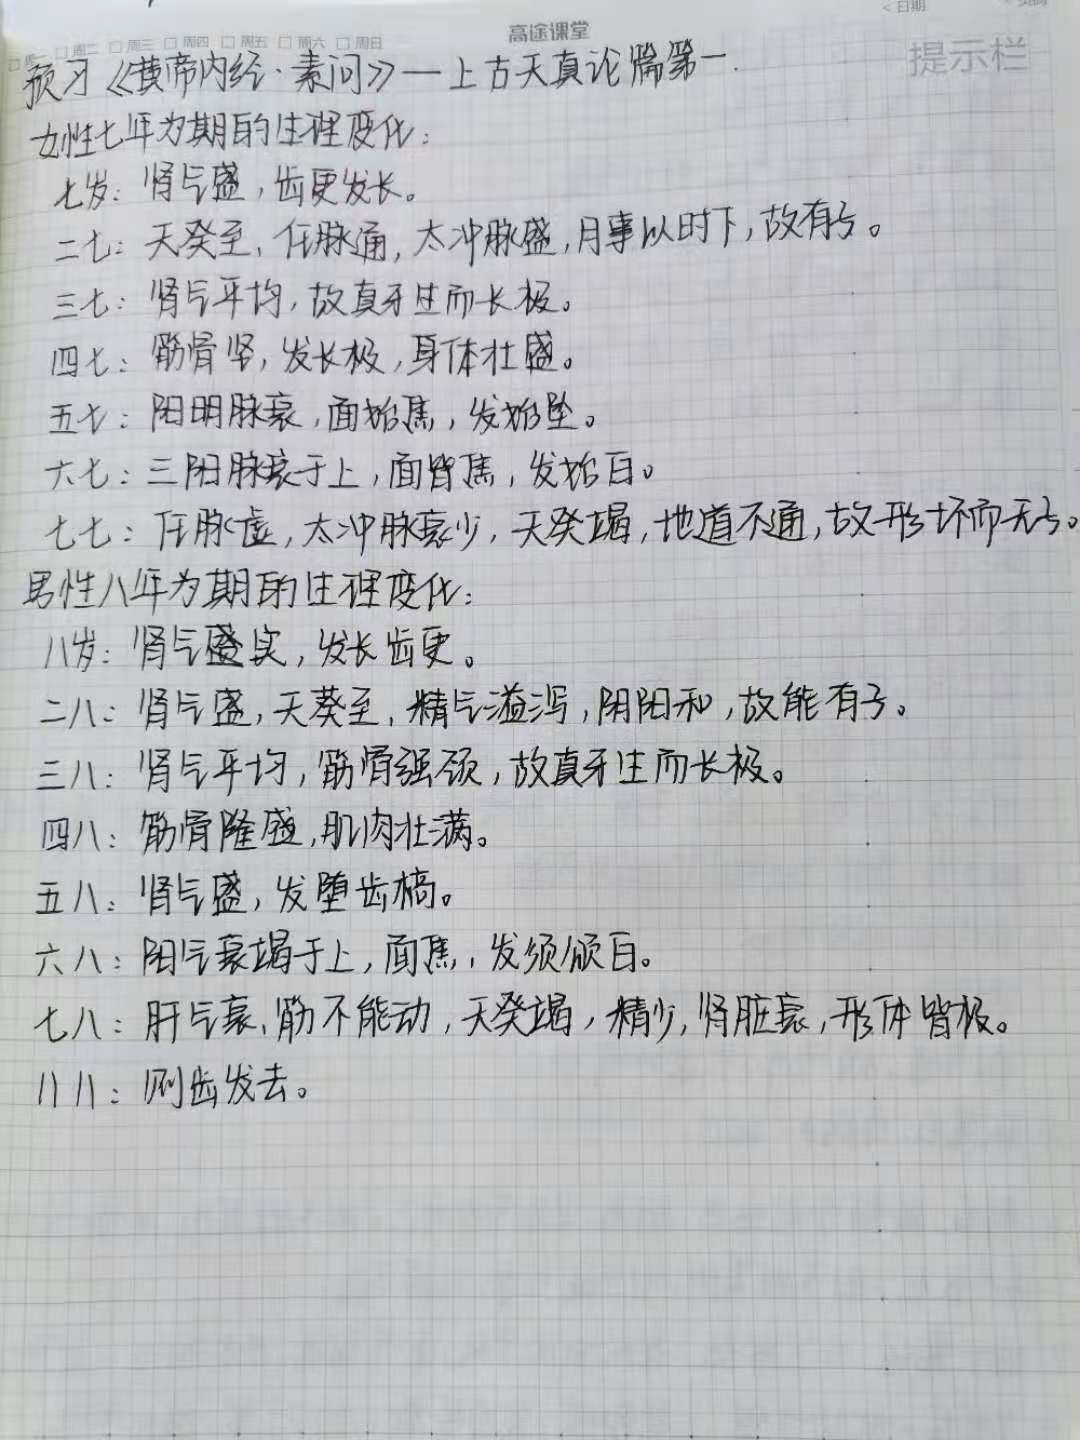 < 日期
高途课堂
周二 周三 周四 周五 周六 周日
提示栏
预习《黄帝内经·素问》—上古天真论篇第一.
女性七年为期的生理变化：
七岁：肾气盛，齿更发长。
二七：天癸至，任脉通，太冲脉盛，月事以时下，故有子。
三七：肾气平均，故真牙生而长极。
四七：筋骨坚，发长极，身体壮盛。
五七：阳明脉衰，面始焦，发始坠。
六七：三阳脉衰于上，面皆焦，发始白。
七七：任脉虚，太冲脉衰少，天癸竭，地道不通，故形坏而无子。
男性八年为期的生理变化：
八岁：肾气盛实，发长齿更。
二八：肾气盛，天葵至，精气溢泻，阴阳和，故能有子。
三八：肾气平均，筋骨强颈，故真牙生而长极。
四八：筋骨隆盛，肌肉壮满。
五八：肾气盛，发堕齿槁。
六八：阳气衰竭于上，面焦，发须颁白。
七八：肝气衰、筋不能动，天癸竭，精少，肾脏衰，形体皆极。
八八：则齿发去。